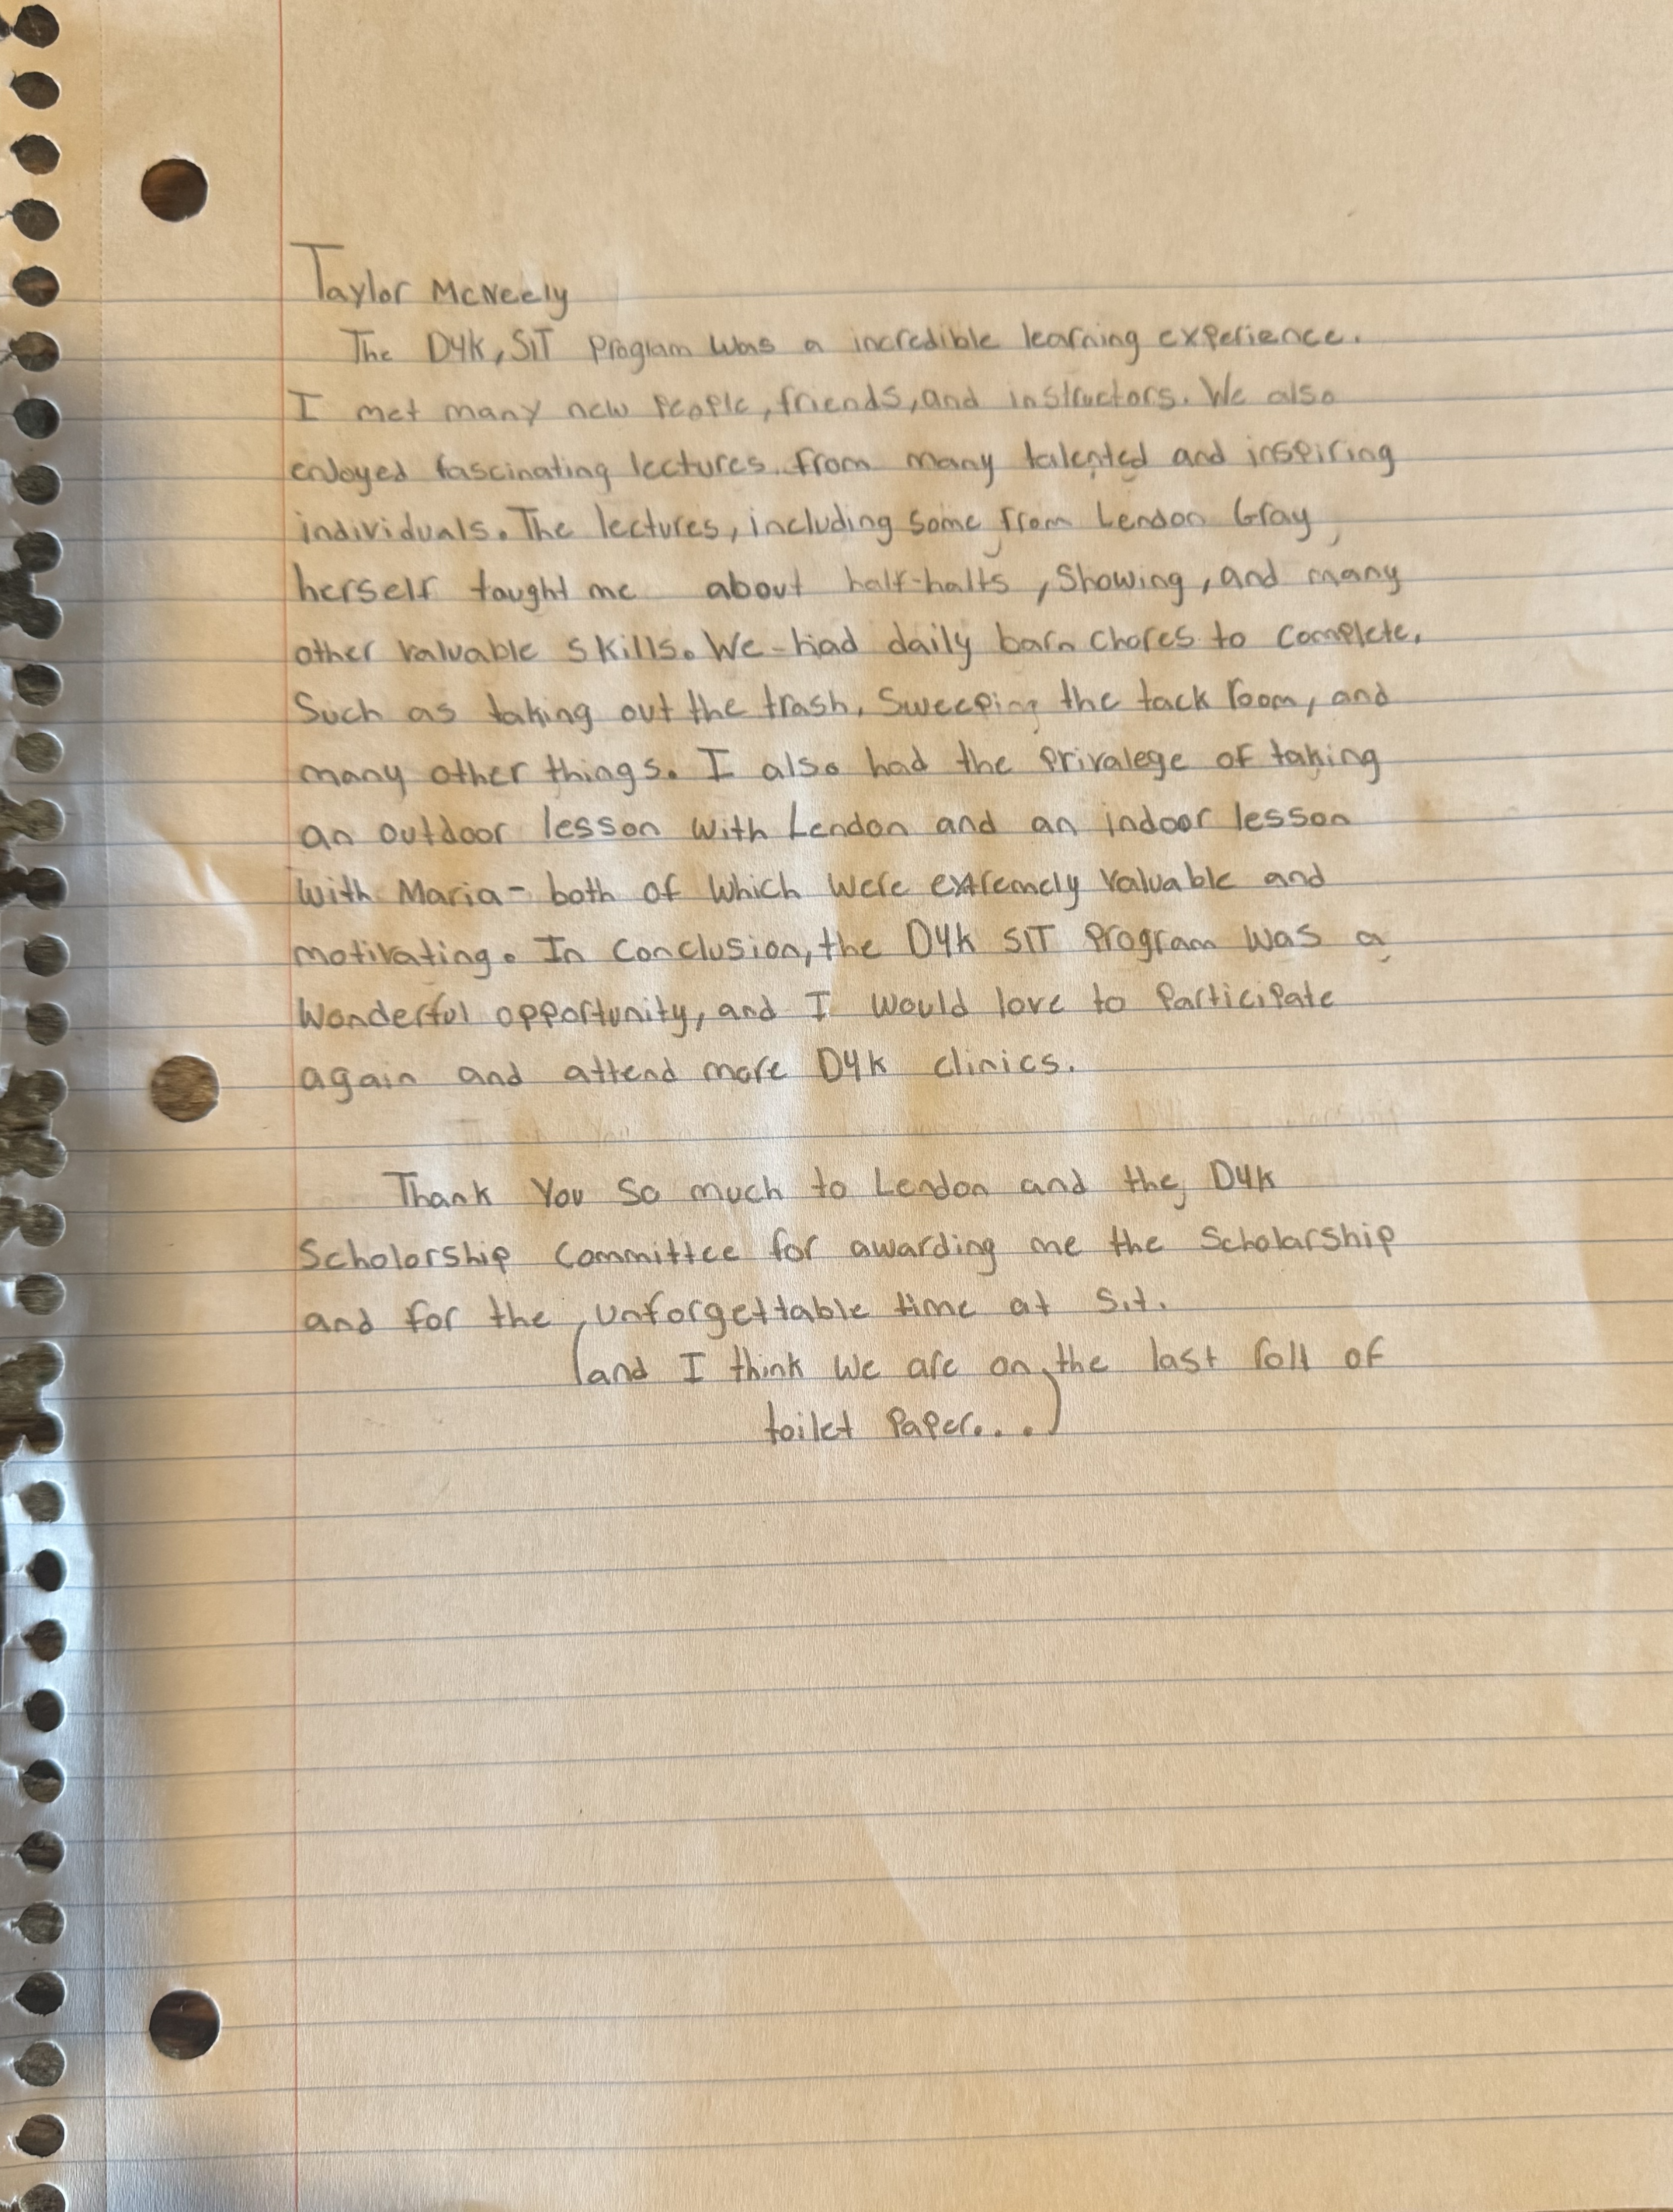 Taylor McNeely
The D4K, SIT Program was a incredible learning experience.
I met many new people, friends, and instructors. We also
enjoyed fascinating lectures from many talented and inspiring
individuals. The lectures, including some from Lendon Gray,
herself taught me about half-halts, Showing, and many
other valuable skills. We had daily barn chores to complete,
Such as taking out the trash, Sweeping the tack room, and
many other things. I also had the privalege of taking
an outdoor lesson with Lendon and an indoor lesson
with Maria - both of which were extremely valuable and
motivating. In conclusion, the D4K SIT Program was a
wonderful opportunity, and I would love to participate
again and attend more D4K clinics.
Thank you so much to Lendon and the D4K
Scholorship Committee for awarding me the Scholarship
and for the unforgettable time at S.i.t.
(and I think we are on the last roll of
toilet paper....)